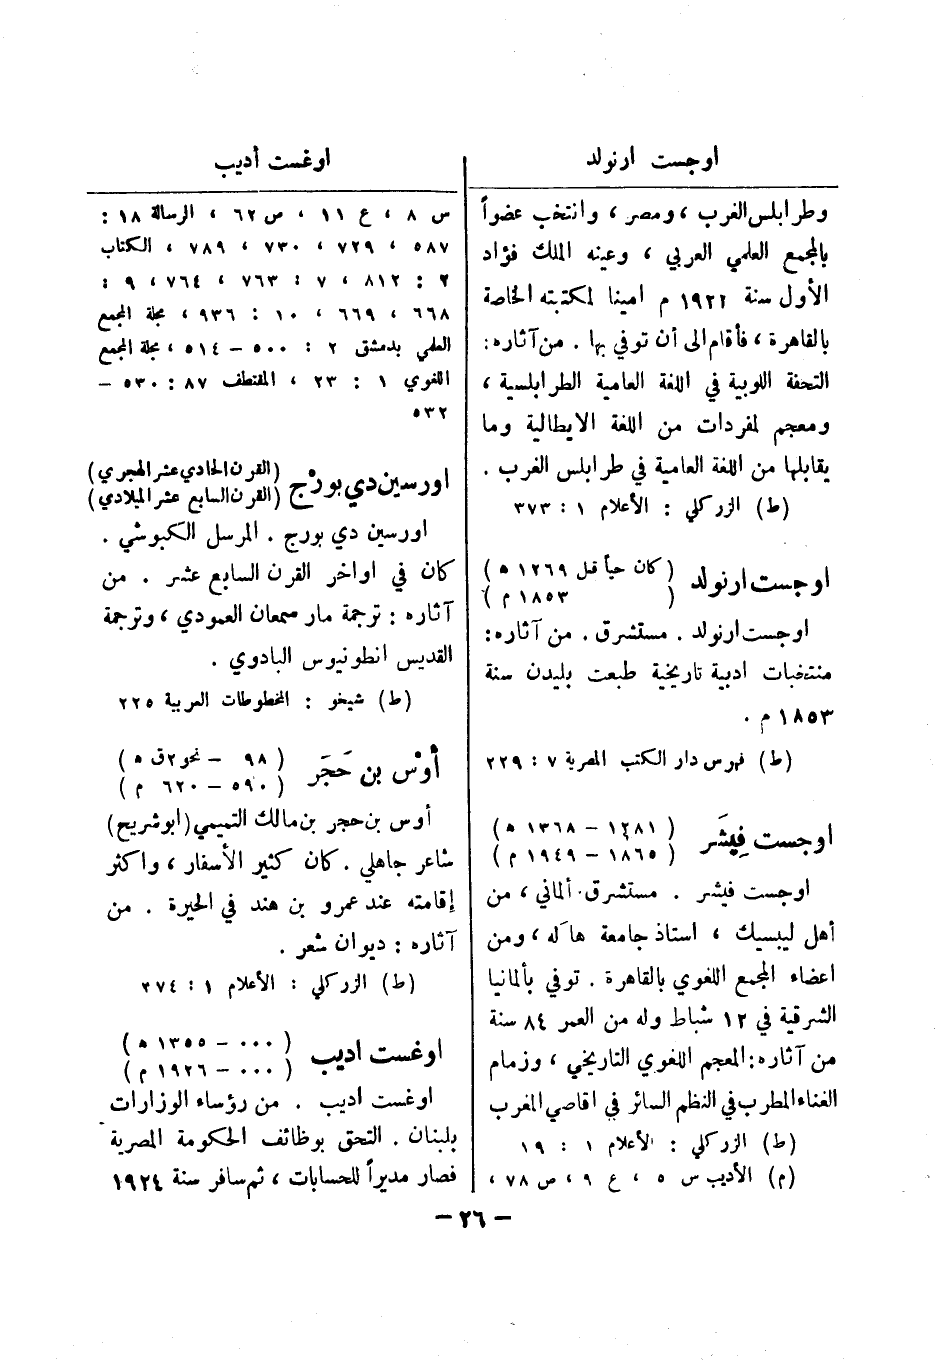 اوجست ارنولد
وطرابلس الغرب ، ومصر ، وانتخب عضواً
بالمجمع العلمي العربي ، وعينه الملك فؤاد
الأول سنة ١٩٢٢ م امينا لمكتبته الخاصة
بالقاهرة ، فأقام الى أن توفي بها . من آثاره :
التحفة اللوبية في اللغة العامية الطرابلسية ،
ومعجم لمفردات من اللغة الايطالية وما
يقابلها من اللغة العامية في طرابلس الغرب .
(ط) الزركلي : الأعلام ١ : ٣٧٣
اوجست ارنولد (كان حياً قبل ١٢٦٩ ه)
( ١٨٥٣ م )
اوجست ارنولد . مستشرق . من آثاره :
منتخبات ادبية تاريخية طبعت بليدن سنة
١٨٥٣ م .
(ط) فهرس دار الكتب المصرية ٧ : ٢٢٩
اوجست فِيشَر ( ١٢٨١ – ١٣٦٨ ه )
( ١٨٦٥ – ١٩٤٩ م )
اوجست فيشر . مستشرق ألماني ، من
أهل ليبسيك ، استاذ جامعة هاله ، ومن
اعضاء المجمع اللغوي بالقاهرة . توفي بألمانيا
الشرقية في ١٢ شباط وله من العمر ٨٤ سنة
من آثاره : المعجم اللغوي التاريخي ، وزمام
الغناء المطرب في النظم السائر في اقاصي المغرب
(ط) الزركلي : الأعلام ١ : ١٩
(م) الأديب س ٥ ، ع ٩ ، ص ٧٨ ،
اوغست أديب
س ٨ ، ع ١١ ، ص ٦٢ ، الرسالة ١٨ :
٥٨٧ ، ٧٢٩ ، ٧٣٠ ، ٧٨٩ ، الكتاب
٢ : ٨١٢ ، ٧ : ٧٦٣ ، ٧٦٤ ، ٩ :
٦٦٨ ، ٦٦٩ ، ١٠ : ٩٣٦ ، مجلة المجمع
العلمي بدمشق ٢ : ٥٠٠ – ٥١٤ ، مجلة المجمع
اللغوي ١ : ٢٣ ، المقتطف ٨٧ : ٥٣٠ –
٥٣٢
اورسين دي بورْج (القرن الحادي عشر الهجري)
(القرن السابع عشر الميلادي)
اورسين دي بورج . المرسل الكبوشي .
كان في اواخر القرن السابع عشر . من
آثاره : ترجمة مار سمعان العمودي ، وترجمة
القديس انطونيوس البادوي .
(ط) شيخو : المخطوطات العربية ٢٢٥
أَوْس بن حَجَر ( ٩٨ – نحو ٢ ق ه )
( ٥٩٠ – ٦٢٠ م )
أوس بن حجر بن مالك التميمي (ابو شريح)
شاعر جاهلي . كان كثير الأسفار ، واكثر
إقامته عند عمرو بن هند في الحيرة . من
آثاره : ديوان شعر .
(ط) الزركلي : الأعلام ١ : ٣٧٤
اوغست اديب ( ٠٠٠ – ١٣٥٥ ه )
( ٠٠٠ – ١٩٣٦ م )
اوغست اديب . من رؤساء الوزارات
بلبنان . التحق بوظائف الحكومة المصرية
فصار مديراً للحسابات ، ثم سافر سنة ١٩٢٤
– ٢٦ –